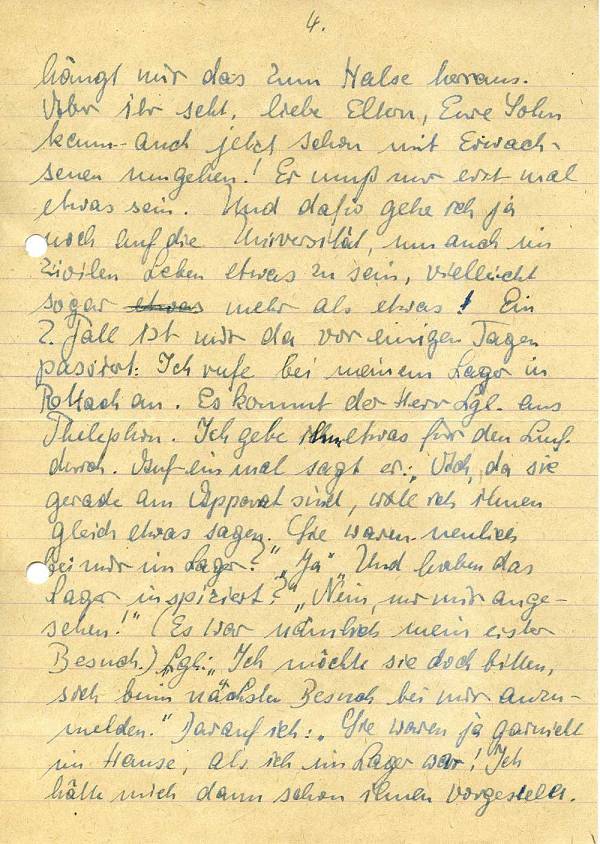 4.
hängt mir das zum Halse heraus.
Aber ihr seht, liebe Eltern, Eure Sohn
kann auch jetzt schon mit Erwach-
senen umgehen! Er muß nur erst mal
etwas sein. Und dafür gehe ich ja
noch auf die Universität, um auch im
zivilen Leben etwas zu sein, vielleicht
sogar etwas mehr als etwas! Ein
2. Fall ist mir da vor einigen Tagen
passirt: Ich rufe bei meinem Lager in
Rottach an. Es kommt der Herr Lgl. ans
Thelephon. Ich gebe ihm etwas für den
durch. Auf einmal sagt er: „Ach, da sie
gerade am Apparat sind, will ich ihnen
gleich etwas sagen. Sie waren neulich
bei mir im Lager?" „Ja" „Und haben das
Lager inspiziert?" „Nein, nur mir ange-
sehen!" (Es war nämlich mein erster
Besuch.) Lgl.: „Ich möchte sie doch bitten,
sich beim nächsten Besuch bei mir anzu-
melden." Darauf ich: „Sie waren ja garnicht
im Hause, als ich im Lager war! Ich
hätte mich dann schon ihnen vorgestellt.